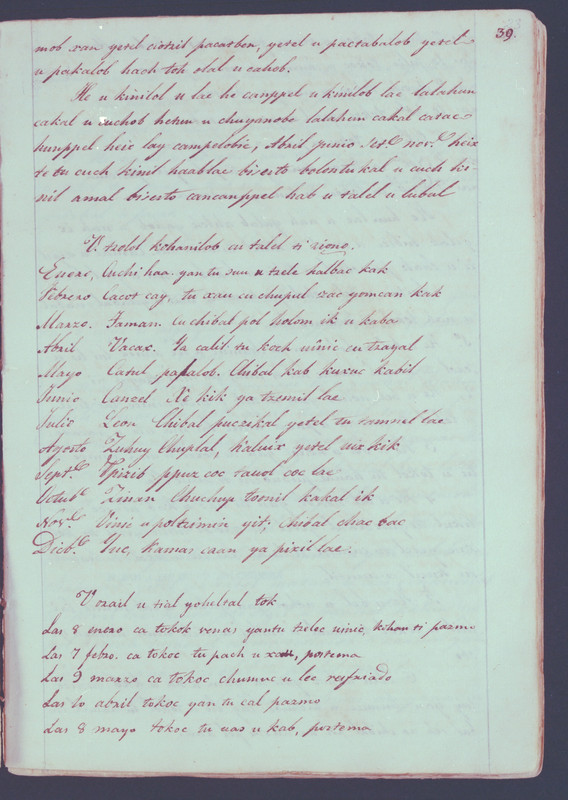 39.
mob xan yetel ciotzil pacatben, yetel u pactabalob yetel
u pakalob hach toh olal u cahob.
He u kinilol u lae ho canppel u kinilob lae lalahun
cakal u cuchob hetun u chuyanobe lalahun cakal catac
hunppel heix lay campelobic, Abril junio Set.e nov.e heix
te tu cuch kinil haablae bisesto bolontukal u cuch ki-
nil amal bisesto cancanppel hab u talel u lubul
V. tzolol kohanilob cu talel ti signo.
Enero, Cuchi haa. yan tu suu u tzele halbac kak
Febrero Cacot cay, tu xau cu chupul zac yomcan kak
Marzo. Taman. Cu chibal pol holom ik u kaba
Abril Vacax. Ya calil tu koch uinic cu tzayal
Mayo Catul papalob. Chibal kab kuxuc kabil
Junio Cancel Xe kik ya tzemil lae
Julio Leon Chibal puczikal yetel tu tamnel lae
Agosto Zuhuy Chuplal, Kaluix yetel uix kik
Sept.e Ppizib ppuz coc tauol coc lae
Octub.e Zinan Chuchup tomil kakal ik
Nov.e Vinic u poltzimin yit, chibal chac bac
Dicb.e Yuc, Kamas caan ya pixil lae.
V. xail u tial yoheltal tok
Las 8 enero ca tokok venas yantu tzelec uinic, kohan ti pazmo
Las 7 febro. ca tokoc tu pach u xau, postema
Las 9 marzo ca tokoc chumuc u lec resfriado
Las 10 abril tokoc yan tu cal pazmo
Las 8 mayo tokoc tu nao u kab, postema